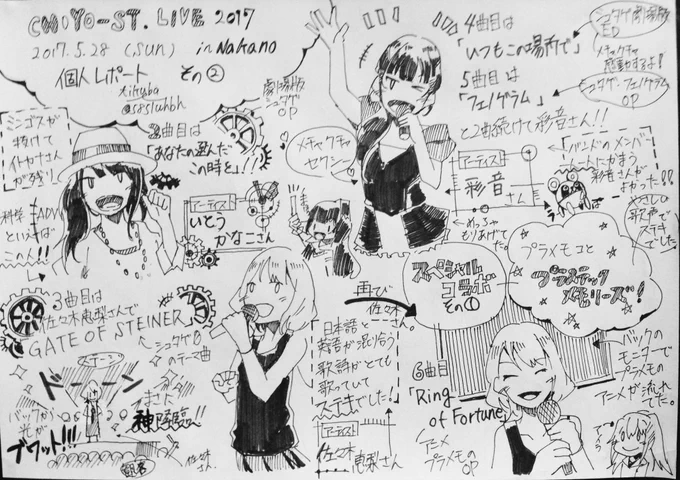 CHIYO-ST. LIVE 2017
2017.5.28 (SUN) in Nakano
個人レポート その②
ミンゴスが
抜けて
イトカナさん
が残り、
2曲目は
「あなたの選んだ
この時を」!!!
劇場版
シュタゲ
OP
科学ADV
といえば
この人!!
アーティスト
いとう
かなこさん
4曲目は
「いつもこの場所で」
シュタゲ劇場版
ED
メチャクチャ
感動するよ!
5曲目は
「フェノグラム」
シュタゲ・フェノグラム
OP
と2曲続けて彩音さん!!
メチャクチャ
セクシー
アーティスト
彩音
さん
めっちゃ
もりあげてた。
「バンドのメンバー
一人一人にかまう
彩音さんが
よかった!!
やさしい
歌声で
ステキでした!
3曲目は
佐々木恵梨さんで
GATE OF STEINER
シュタゲ0
のテーマ曲
ステージ
ドーーン
バックから
光が
ブワッ!!!
まさに
神降臨…!!
観客
佐々木
さん
日本語と
英語が混じり合う
歌詞がとても
歌っていて
ステキでした!
アーティスト
佐々木
恵梨さん
再び
佐々木
さん。
スペシャル
コラボ
その①
プラメモこと
プラスティック
メモリーズ!
6曲目
「Ring
of Fortune」
アニメ
プラメモの
OP
バックの
モニターで
プラメモの
アニメが流れ
てた。